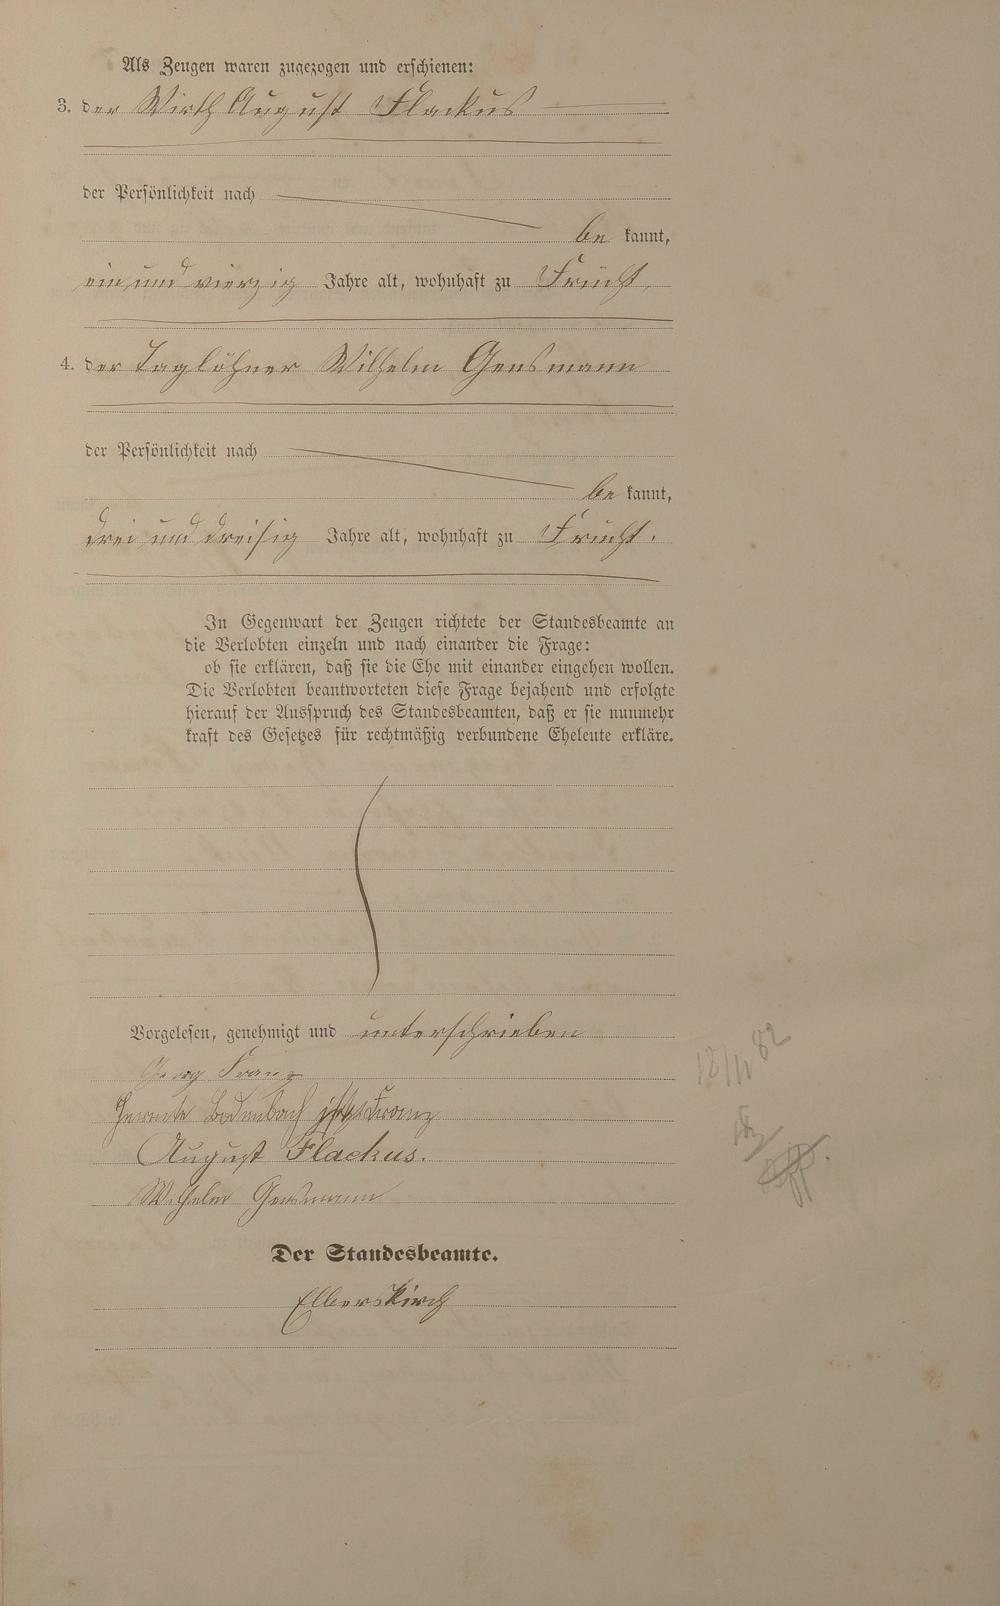 Als Zeugen waren zugezogen und erschienen:
3. der Wirth August Flackus
der Persönlichkeit nach
be kannt,
ein und vierzig Jahre alt, wohnhaft zu Frücht,
4. der Taglöhner Wilhelm Gensmann
der Persönlichkeit nach
be kannt,
drei und dreisig Jahre alt, wohnhaft zu Frücht.
In Gegenwart der Zeugen richtete der Standesbeamte an
die Verlobten einzeln und nach einander die Frage:
ob sie erklären, daß sie die Ehe mit einander eingehen wollen.
Die Verlobten beantworteten diese Frage bejahend und erfolgte
hierauf der Ausspruch des Standesbeamten, daß er sie nunmehr
kraft des Gesetzes für rechtmäßig verbundene Eheleute erkläre.
Vorgelesen, genehmigt und unterschrieben
Georg Franz
Bodenbach jetzt Franz
August Flackus.
Wilhelm Gensmann
Der Standesbeamte.
Elberskirch